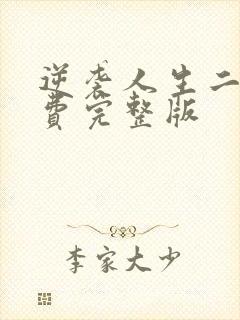 逆袭人生二
費完整版
李家大少